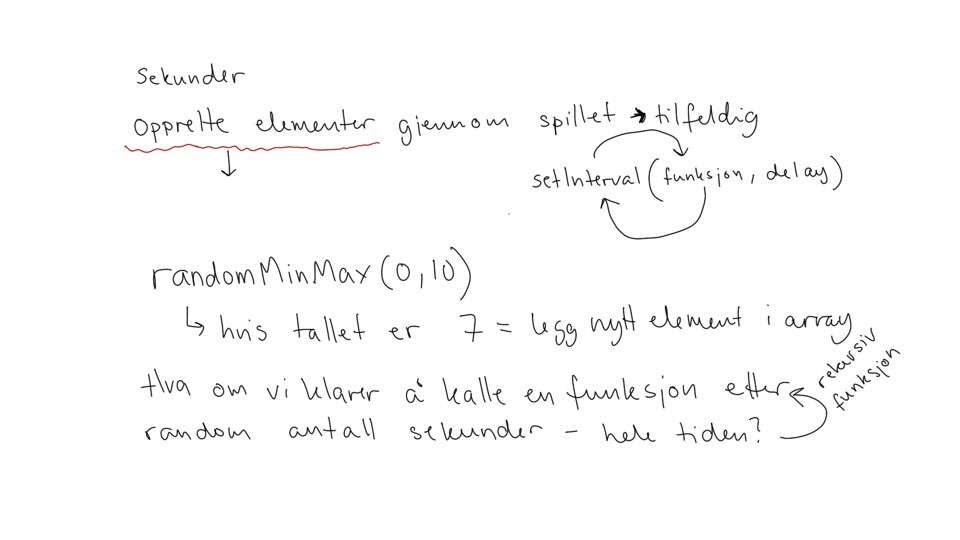 Sekunder
Opprette elementer gjennom spillet → tilfeldig
setInterval(funksjon, delay)
randomMinMax(0,10)
↳ hvis tallet er 7 = legg nytt element i array
Hva om vi klarer å kalle en funksjon etter
random antall sekunder - hele tiden?
rekursiv
funksjon